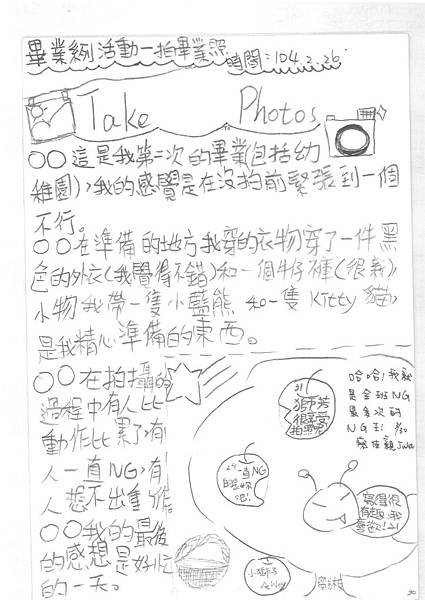 畢業系列活動一拍畢業照
時間：104.2.26
Take Photos
○○這是我第二次的畢業(包括幼
稚園)，我的感覺是在沒拍前緊張到一個
不行。
○○在準備的地方我穿的衣物穿了一件黑
色的外衣(我覺得不錯)和一個牛仔褲(很新)，
小物我帶一隻小藍熊和一隻Kitty貓，
是我精心準備的東西。
○○在拍攝的
過程中有人比
動作比累了，有
人一直NG，有
人想不出動作。
○○我的最後
的感想是好忙
的一天。
哈哈！我就
是全班NG
最多次的
NG王！
寫得很
有趣，我
喜歡！
21
一直NG
小獅子